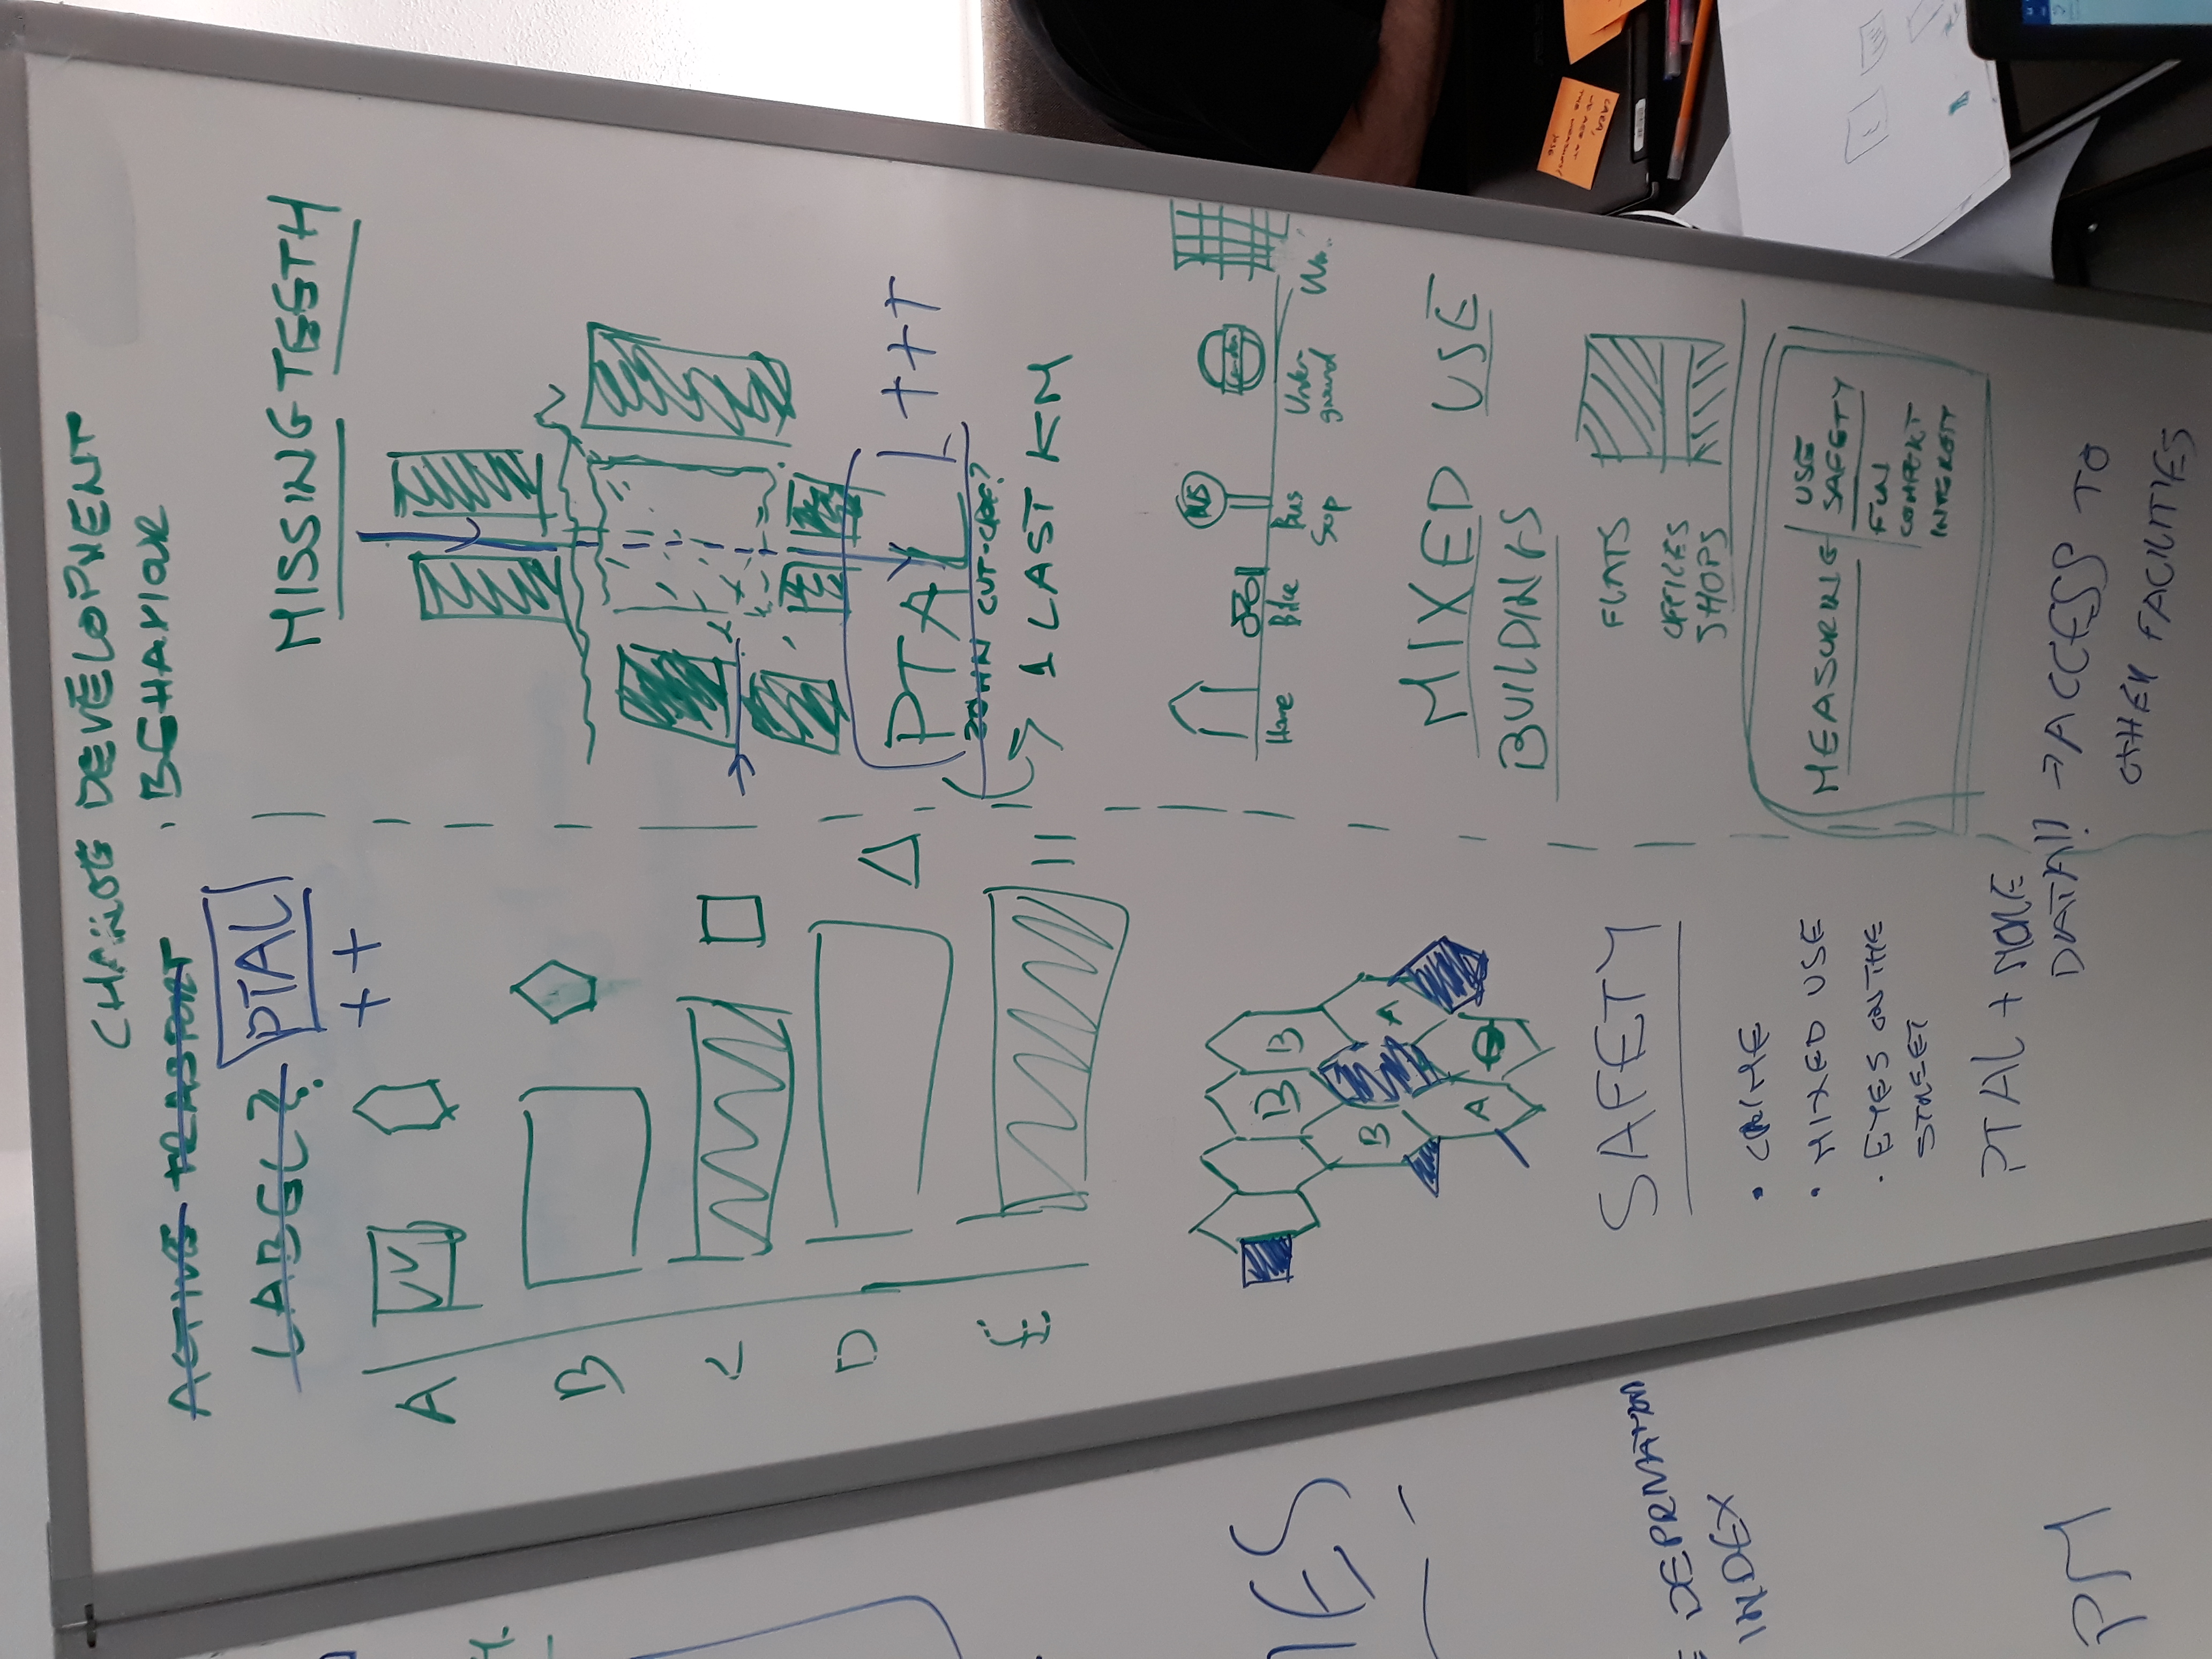 CHANGE DEVELOPMENT
BEHAVIOUR
ACTIVE TRASPORT
LABEL?
PTAL
++
A
B
C
D
E
B B
B A
A
SAFETY
• CRIME
• MIXED USE
• EYES ON THE
STREET
PTAL + MORE
DATA!! → ACCESS TO
OTHER FACILITIES
MISSING TEETH
PTAL +++
1 LAST KM
BUS
Home
Bike
Bus
Sop
Under-
ground
MIXED USE
BUILDINGS
FLATS
OFFICES
SHOPS
MEASURING
USE
SAFETY
FUN
COMFERT
INTEREST
DEPRIVATION
INDEX
PM